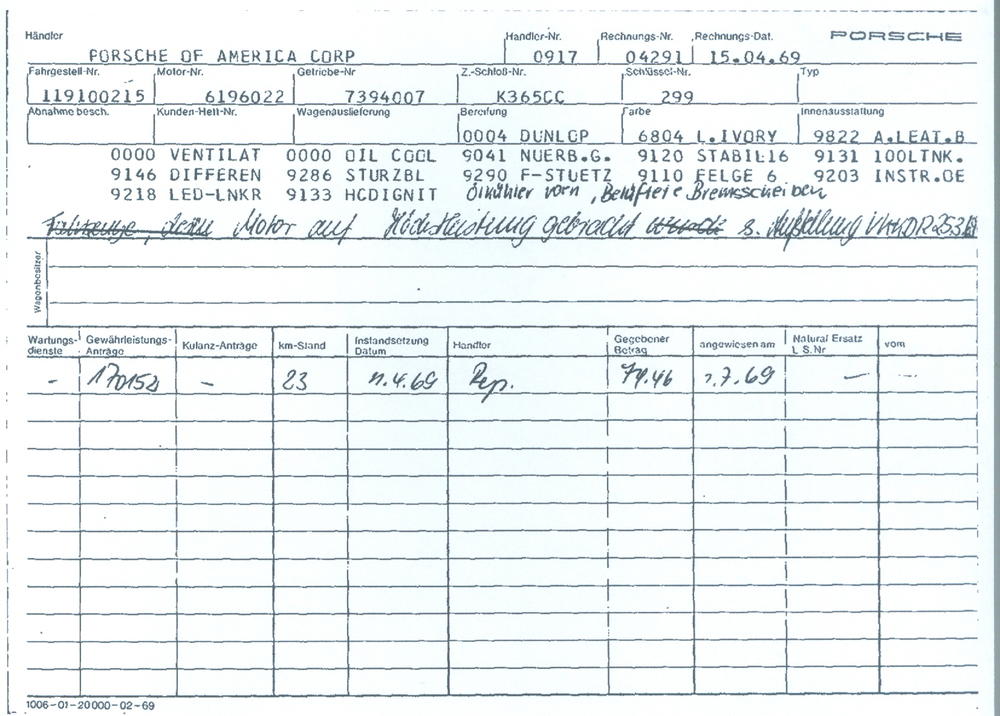 Händler Händler-Nr. Rechnungs-Nr. Rechnungs-Dat. PORSCHE
PORSCHE OF AMERICA CORP 0917 04291 15.04.69
Fahrgestell-Nr. Motor-Nr. Getriebe-Nr Z.-Schloß-Nr. Schlüssel-Nr. Typ
119100215 6196022 7394007 K365CC 299
Abnahme besch. Kunden-Heft-Nr. Wagenauslieferung Bereifung Farbe Innenausstattung
0004 DUNLOP 6804 L.IVORY 9822 A.LEAT.B
0000 VENTILAT 0000 OIL COOL 9041 NUERB.G. 9120 STABIL16 9131 100LTNK.
9146 DIFFEREN 9286 STURZBL 9290 F-STUETZ 9110 FELGE 6 9203 INSTR.OE
9218 LED-LNKR 9133 HCDIGNIT Ölkühler vorn, Belüftete Bremsscheiben
Fahrzeuge, deren Motor auf Höchstleistung gebracht wurde s. Aufstellung
Wagenbesitzer
Wartungs-dienste Gewährleistungs-Anträge Kulanz-Anträge km-Stand Instandsetzung Datum Händler Gegebener Betrag angewiesen am Natural Ersatz L.S.Nr vom
- 170152 - 23 11.4.69 Rep. 79.46 1.7.69 - -
1006-01-20000-02-69